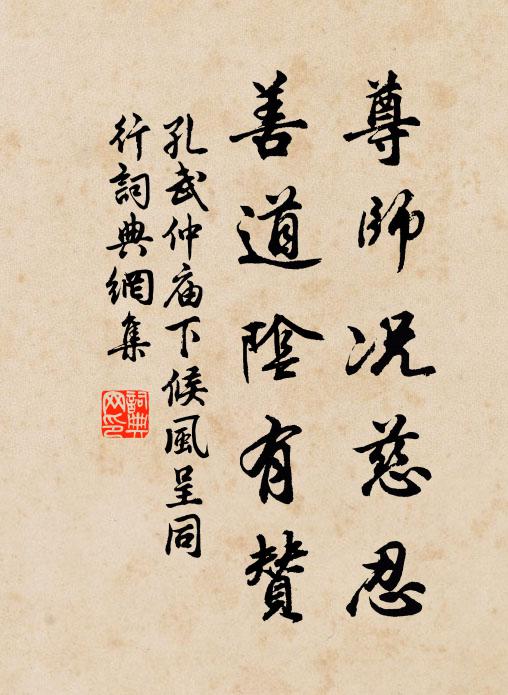 尊師况慈忍
善道陰有贊
孔武仲庙下候風呈同
行詞典網集
詞典网印